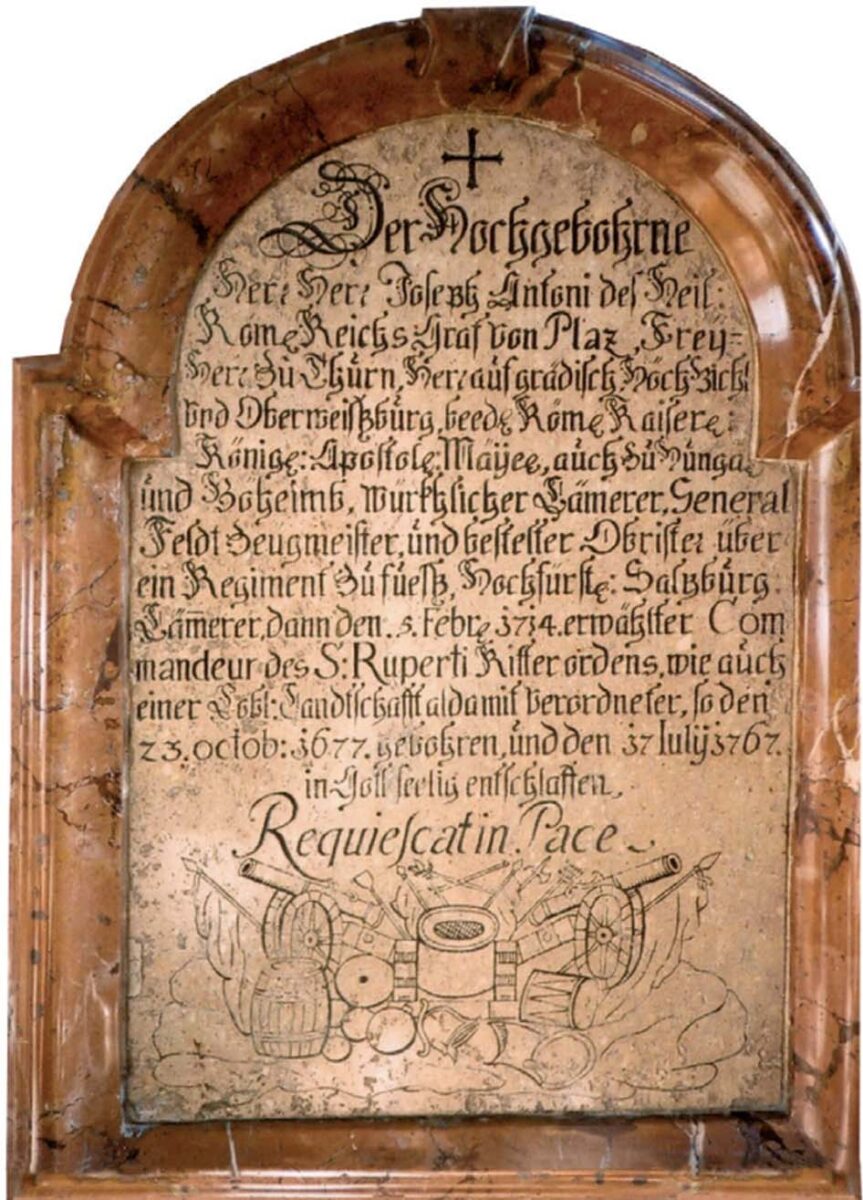 Der Hochgebohrne
Herr Herr Joseph Antoni des Heil:
Röm: Reichs Graf von Plaz, Frey=
Herr zu Thürn, Herr auf grädisch Höch
vnd Oberweißbürg, beede Röm: Kaiser:
Könige: Apostole: Mäÿe:, aüch zü Hünga
ünd Böheimb, würkhlicher Cämerer, General
Feldt Zeügmeister, ünd bestelter Obrister über
ein Regiment zü füeß, Hochfürstl: Salzbürg:
Cam̅erer, dann den .5. Febr: 1714. erwählter Com
mandeur des S: Ruperti Ritter ordens, wie aüch
einer Löbl: Landtschafft alda mit verordneter, so den
23. octob: 1677. gebohren, ünd den 17 Iulÿ 1767.
in Gott seelig entschlaffen,
Requiescat in Pace